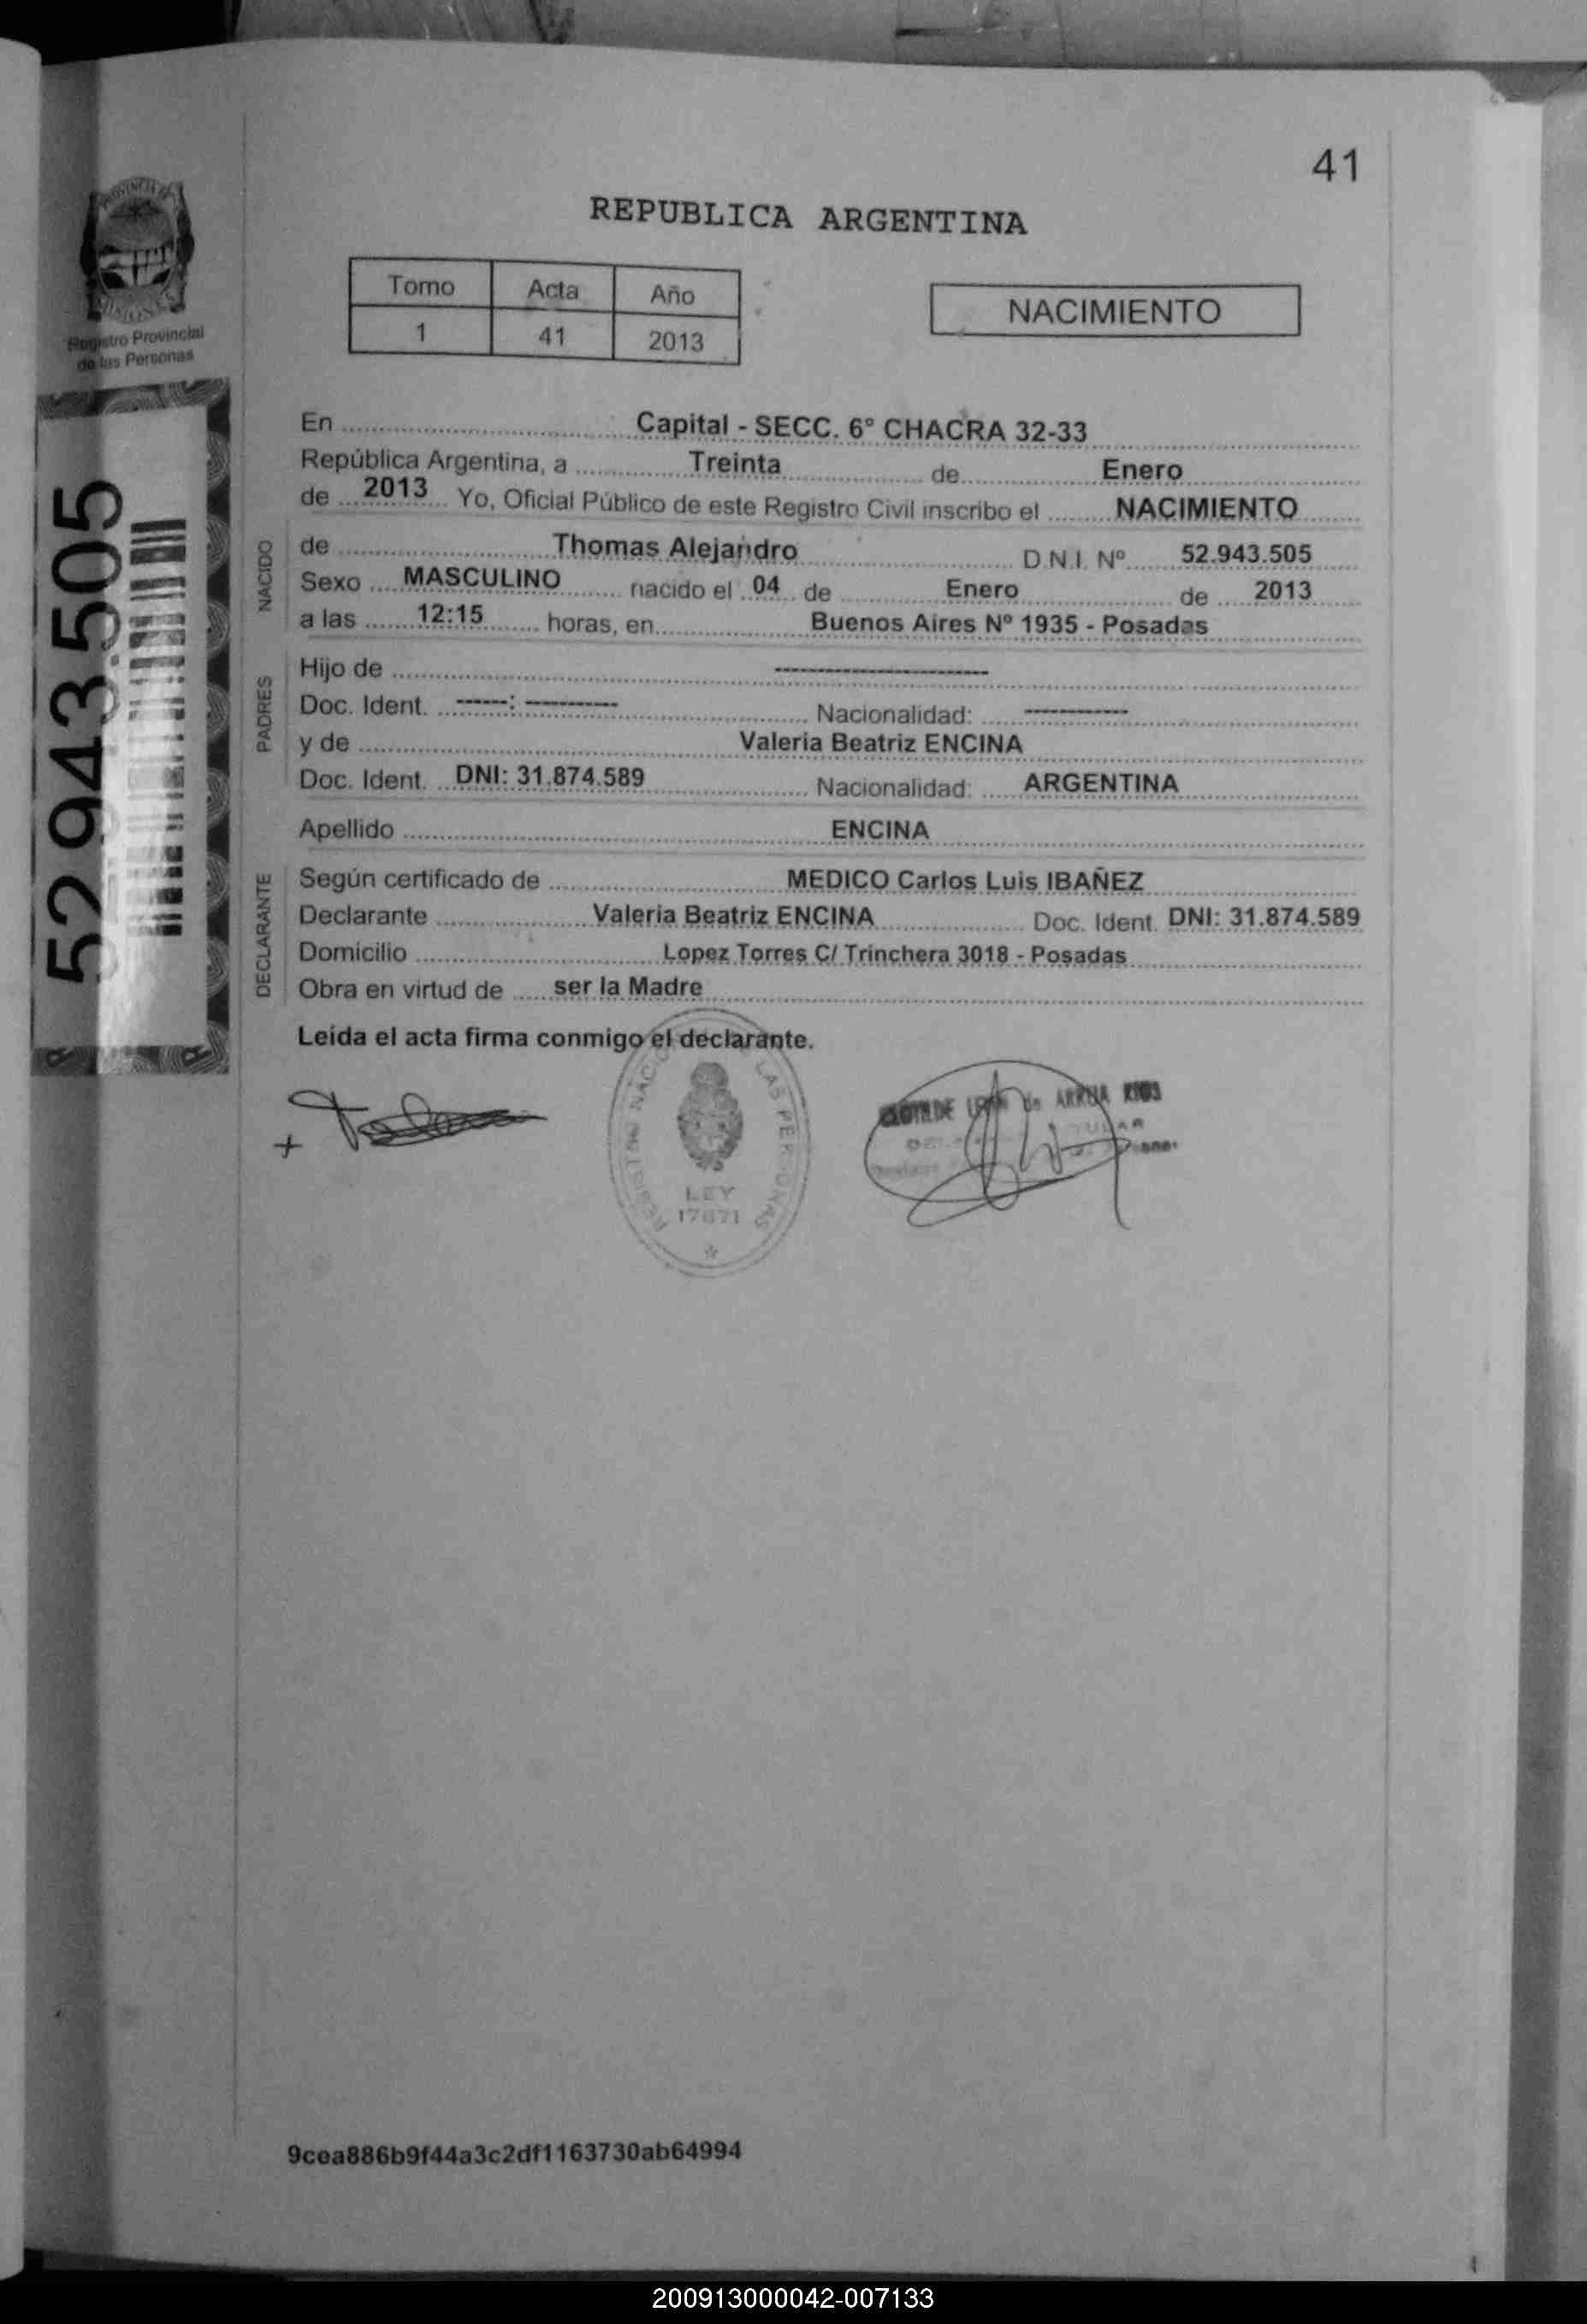 41
REPUBLICA ARGENTINA
Tomo Acta Año
1 41 2013
NACIMIENTO
PROVINCIA DE
MISIONES
Registro Provincial
de las Personas
52.943.505
En Capital - SECC. 6° CHACRA 32-33
República Argentina, a Treinta de Enero
de 2013 Yo, Oficial Público de este Registro Civil inscribo el NACIMIENTO
NACIDO
de Thomas Alejandro D.N.I. Nº 52.943.505
Sexo MASCULINO nacido el 04 de Enero de 2013
a las 12:15 horas, en Buenos Aires Nº 1935 - Posadas
PADRES
Hijo de --------------------
Doc. Ident. -----: --------- Nacionalidad: ----------
y de Valeria Beatriz ENCINA
Doc. Ident. DNI: 31.874.589 Nacionalidad: ARGENTINA
Apellido ENCINA
DECLARANTE
Según certificado de MEDICO Carlos Luis IBAÑEZ
Declarante Valeria Beatriz ENCINA Doc. Ident. DNI: 31.874.589
Domicilio Lopez Torres C/ Trinchera 3018 - Posadas
Obra en virtud de ser la Madre
Leida el acta firma conmigo el declarante.
REGISTRO NACIONAL LAS PERSONAS
LEY
17671
de ARRUA RIOS
9cea886b9f44a3c2df1163730ab64994
200913000042-007133